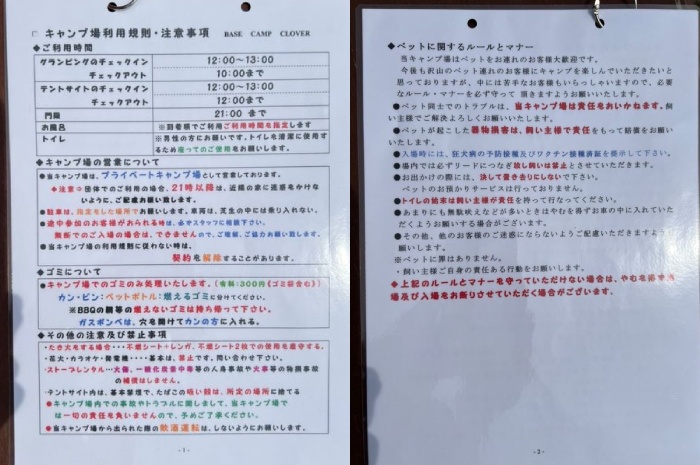 □ キャンプ場利用規則・注意事項 BASE CAMP CLOVER
◆ご利用時間
グランピングのチェックイン 12:00～13:00
チェックアウト 10:00まで
テントサイトのチェックイン 12:00～13:00
チェックアウト 12:00まで
門限 21:00 まで
お風呂 ※到着順でご利用ご利用時間を指定します
トイレ ※男性の方にお願いです。トイレを清潔に使用す
るため座ってのご使用をお願いします。
◆キャンプ場の営業について
●当キャンプ場は、プライベートキャンプ場として営業しております。
※注意⇒団体でのご利用の場合、21時以降は、近隣の家に迷惑をかけな
いように、ご配慮お願い致します。
●駐車は、指定をした場所でお願い致します。車両は、芝生の中には乗り入れない。
●途中参加のお客様がおられる時は、必ずスタッフに相談下さい。
無断でのご入場の場合は、できませんので、ご理解、ご協力お願い致します。
●当キャンプ場の利用規則に従わない時は、
契約を解除することがあります。
◆ゴミについて
●キャンプ場でのゴミのみ処理いたします。(有料:300円(ゴミ袋含む))
カン・ビン:ペットボトル:燃えるゴミに分けてください。
※BBQの網等の燃えないゴミは持ち帰って下さい。
ガスボンベは、穴を開けてカンの方に入れる。
◆その他の注意及び禁止事項
・たき火をする場合・・・不燃シート+レンガ、不燃シート2枚での使用を厳守する。
・花火・カラオケ・発電機・・・・基本は、禁止です。問い合わせ下さい。
・ストーブレンタル・・・火傷、一酸化炭素中毒等の人身事故や火事等の物損事故
の補償はしません。
・テントサイト内は、基本禁煙で、たばこの吸い殻は、所定の場所に捨てる
●キャンプ場内での事故やトラブルに関しまして、当キャンプ場で
は一切の責任を負いませんので、予めご了承ください。
●当キャンプ場から出られた際の飲酒運転は、しないようにお願いします。
- 1 -
◆ペットに関するルールとマナー
当キャンプ場はペットをお連れのお客様大歓迎です。
今後も沢山のペット連れのお客様にキャンプを楽しんでいただきたいと
思っておりますが、中には苦手なお客様もいらっしゃいますので、必要
なルール・マナーを必ず守って 頂きますようお願いいたします。
●ペット同士でのトラブルは、当キャンプ場は責任をおいかねます。飼
い主様でご解決よろしくお願いいたします。
●ペットが起こした器物損害は、飼い主様で責任をもって賠償をお願い
いたします。
●入場時には、狂犬病の予防接種及びワクチン接種済証を提示して下さい。
●場内では必ずリードにつなぎ放し飼いは禁止とさせていただきます。
●お出かけの際には、決して置き去りにしないで下さい。
ペットのお預かりサービスは行っておりません。
●トイレの始末は飼い主様が責任を持って行なってください。
●あまりにも無駄吠えなどが多いときはやむを得ずお車の中に入れていた
だくようお願いする場合がございます。
●その他、他のお客様のご迷惑にならないようご配慮いただきますようお
願いします。
※ペットに罪はありません。
・飼い主様ご自身の責任ある行動をお願いします。
◆上記のルールとマナーを守っていただけない場合は、やむを得ず
場及び入場をお断りさせていただく場合がございます。
- 2 -